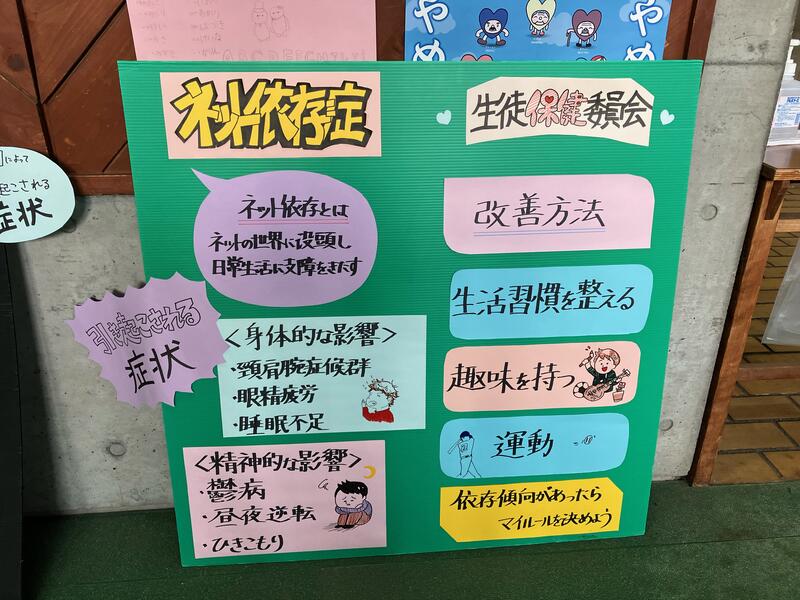 ネット依存症
生徒保健委員会
ネット依存とは
ネットの世界に没頭し
日常生活に支障をきたす
引き起こされる
症状
<身体的な影響>
・頸肩腕症候群
・眼精疲労
・睡眠不足
<精神的な影響>
・鬱病
・昼夜逆転
・ひきこもり
改善方法
生活習慣を整える
趣味を持つ
運動
依存傾向があったら
マイルールを決めよう
によって
起こされる
症状
やめ
やめ